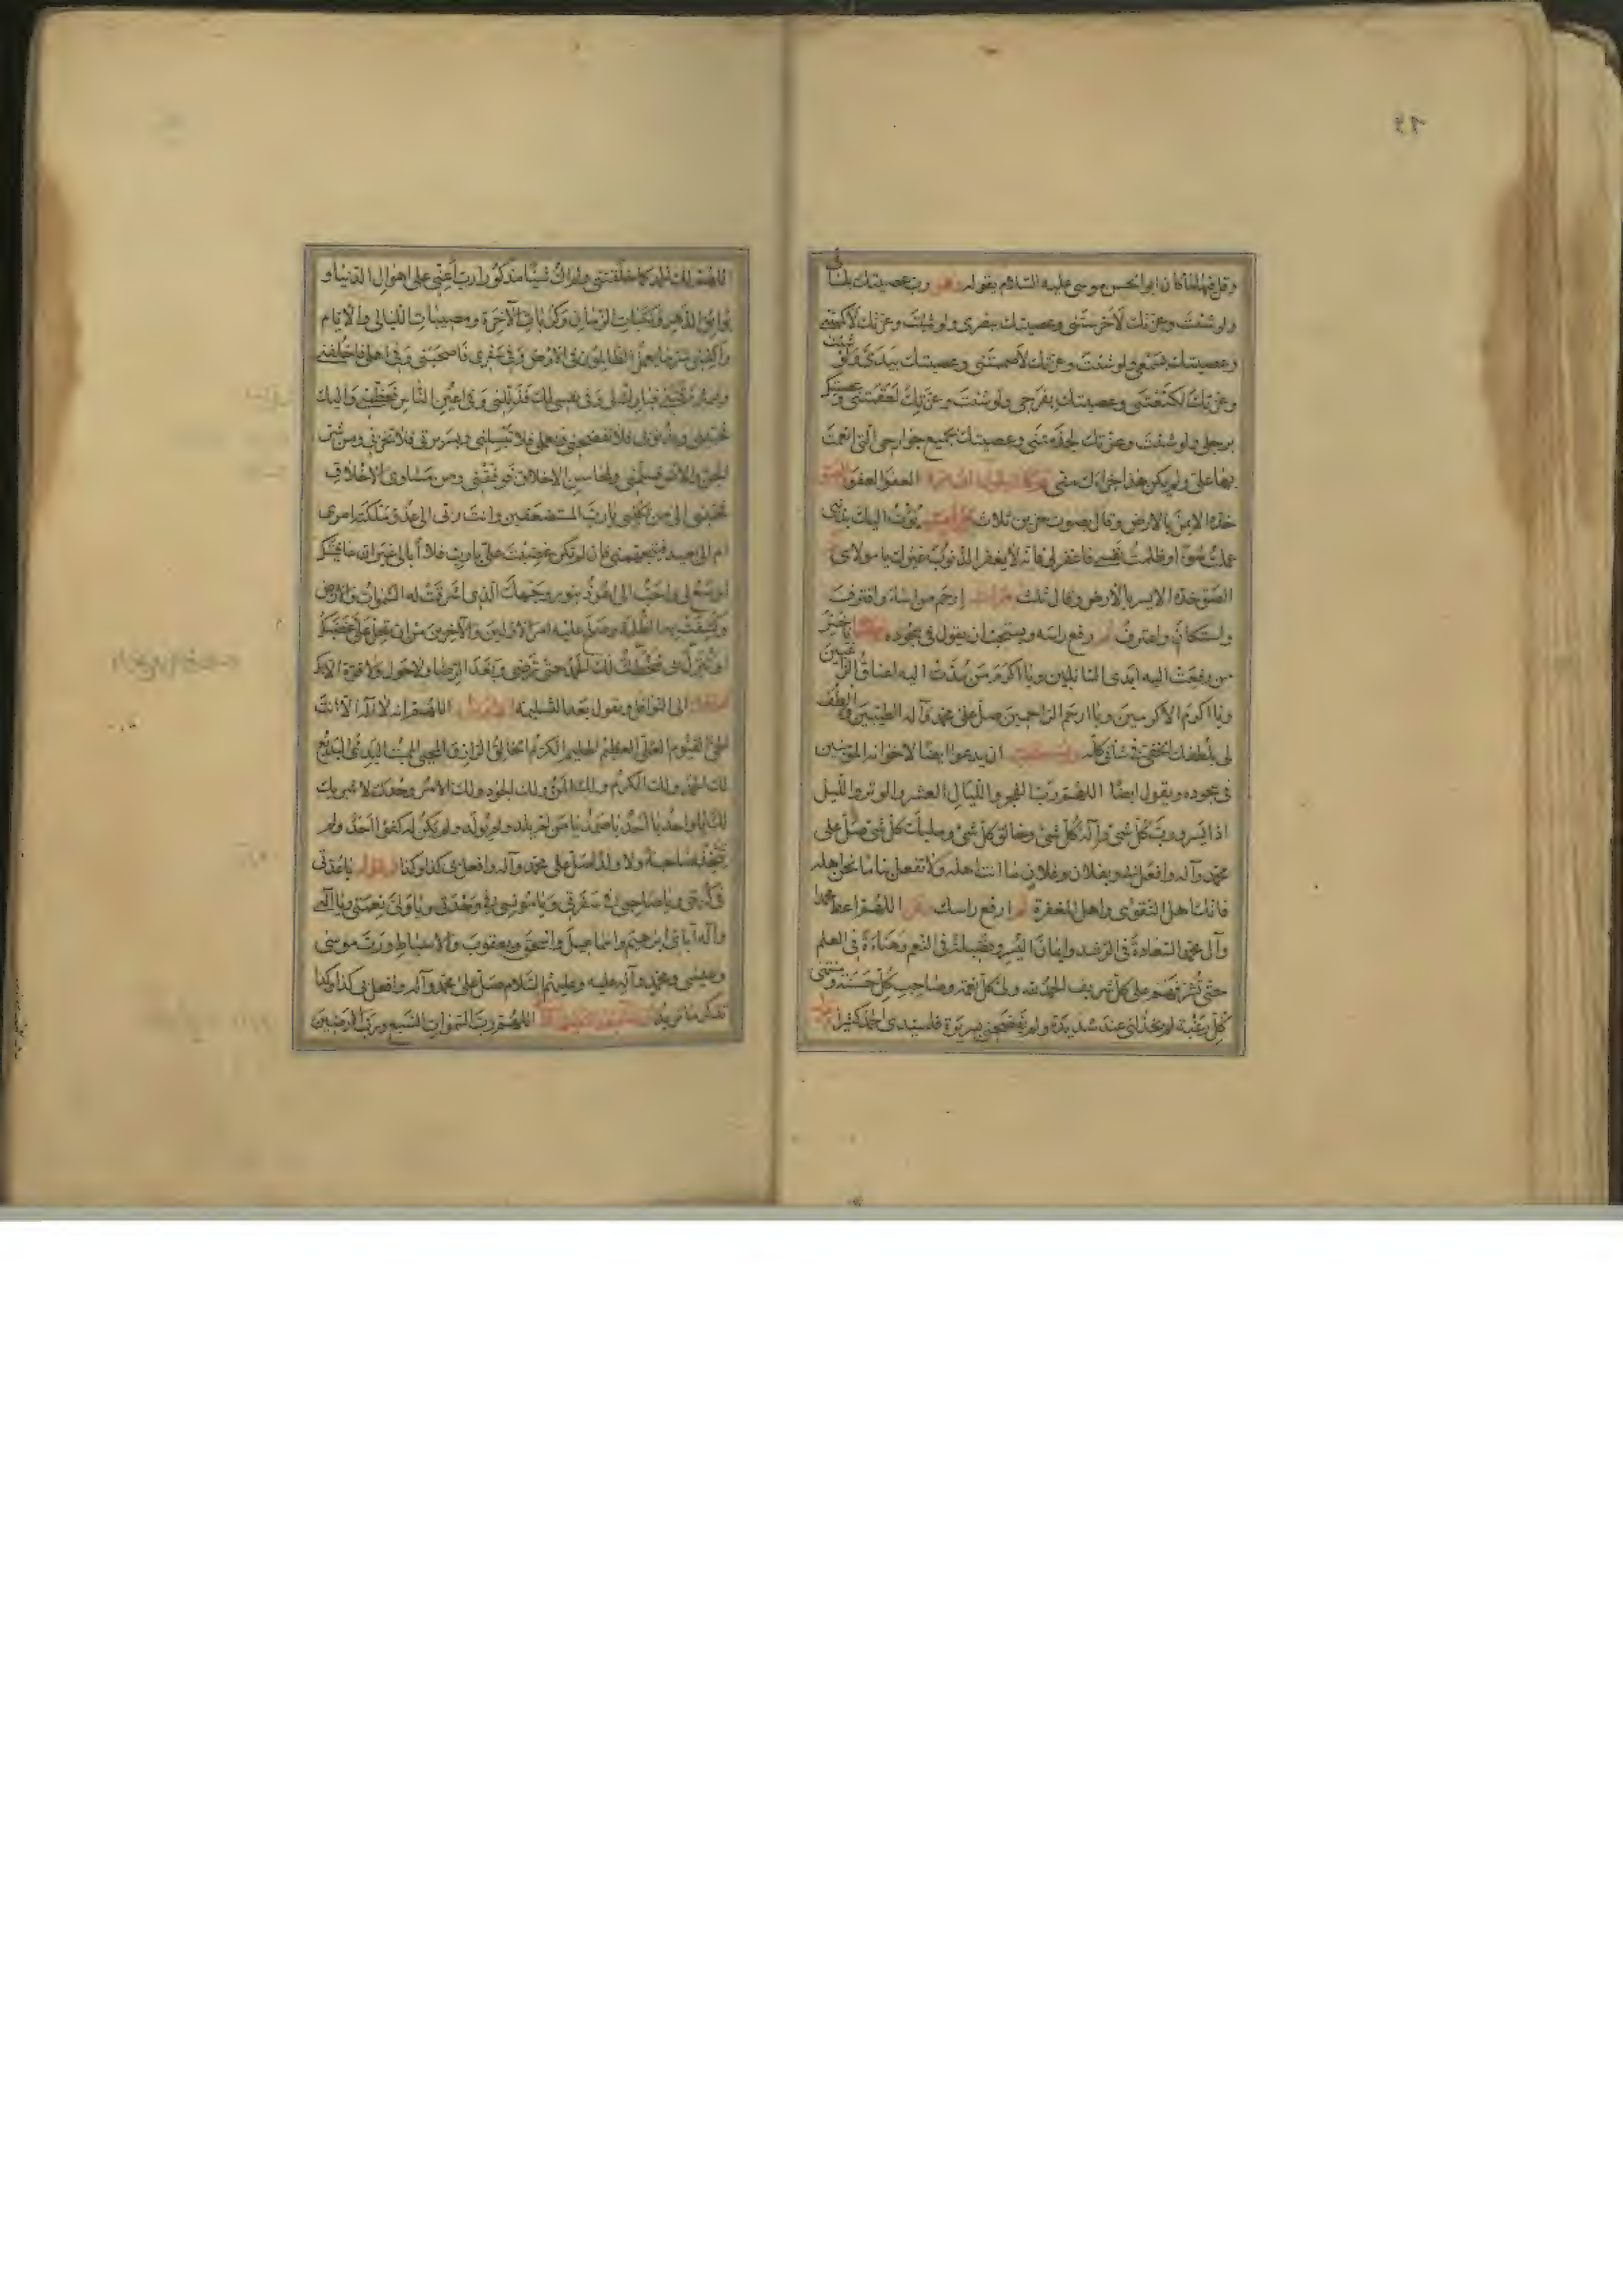 وقل فيها ما كان ابو الحسن موسى عليه السلام يقوله وهو رب عصيتك بلساني
ولو شئت وعزتك لاخرستني وعصيتك ببصري ولو شئت وعزتك لاكمهتني
وعصيتك بسمعي ولو شئت وعزتك لاصممتني وعصيتك بيدي ولو شئت
وعزتك لكنعتني وعصيتك بفرجي ولو شئت وعزتك لعقمتني وعصيتك
برجلي ولو شئت وعزتك لجذمتني وعصيتك بجميع جوارحي التي انعمت
بها علي ولم يكن هذا جزاءك مني العفو العفو
خده الايمن بالارض وقال بصوت حزين ثلاث مرات بؤت اليك بذنبي
عملت سوءا وظلمت نفسي فاغفر لي فانه لا يغفر الذنوب غيرك يا مولاي
الصق خده الايسر بالارض وقال ثلث مرات ارحم من اساء واقترف
واستكان واعترف ثم رفع راسه ويستحب ان يقول في سجوده يا خير
من رفعت اليه ايدي السائلين ويا اكرم من مدت اليه اعناق الراغبين
ويا اكرم الاكرمين ويا ارحم الراحمين صل على محمد وآله الطيبين والطف
لي بلطفك الخفي في شأني كله ان يدعو ايضا لاخوانه المؤمنين
في سجوده ويقول ايضا اللهم رب الفجر والليال العشر والوتر والليل
اذا يسر ورب كل شيء وآله كل شيء وخالق كل شيء ومليك كل شيء صل على
محمد وآله وافعل بي وبفلان وفلان ما انت اهله ولا تفعل بنا ما نحن اهله
فانك اهل التقوى واهل المغفرة ثم ارفع راسك اللهم اعط محمدا
وآل محمد السعادة في الرشد وايمان اليسر وفضيلة في النعم وهناءة في العلم
حتى تشرفهم على كل شريف الحمد لله ولي كل نعمة وصاحب كل حسنة ومنتهى
كل رغبة لم يخذلني عند شديدة ولم يفضحني بسريرة فلسيدي الحمد كثيرا
اللهم لك الحمد كما خلقتني ولم اك شيئا مذكورا رب اعني على اهوال الدنيا و
بوائق الدهر ونكبات الزمان وكربات الآخرة ومصيبات الليالي والايام
واكفني شر ما يعمل الظالمون في الارض وفي سفري فاصحبني وفي اهلي فاخلفني
وفيما رزقتني فبارك لي وفي نفسي لك فذللني وفي اعين الناس فعظمني واليك
فحببني وبذنوبي فلا تفضحني وبعملي فلا تبسلني وبسريرتي فلا تخزني ومن شر
الجن والانس فسلمني ولمحاسن الاخلاق فوفقني ومن مساوي الاخلاق
فجنبني الى من تكلني يا رب المستضعفين وانت ربي الى عدو ملكته امري
ام الى بعيد فيتجهمني فان لم تكن غضبت علي يا رب فلا ابالي غير ان عافيتك
اوسع لي واحب الي اعوذ بنور وجهك الذي اشرقت له السموات والارض
وكشفت به الظلمة وصلح عليه امر الاولين والآخرين من ان تحل علي غضبك
او تنزل بي سخطك لك الحمد حتى ترضى وبعد الرضا ولا حول ولا قوة الا بك
الى النوافل ويقول بعد التسليمة اللهم انه لا اله الا انت
الحي القيوم العلي العظيم الحليم الكريم الخالق الرازق المحيي المميت البدئ البديع
لك الحمد ولك الكرم ولك المن ولك الجود ولك الامر وحدك لا شريك
لك يا واحد يا احد يا صمد يا من لم يلد ولم يولد ولم يكن له كفوا احد ولم
يتخذ صاحبة ولا ولدا صل على محمد وآله وافعل بي كذا وكذا يا عدتي
في كربتي ويا صاحبي في شدتي ويا مونسي في وحدتي ويا وليي نعمتي ويا الهي
واله آبائي ابرهيم واسماعيل واسحق ويعقوب والاسباط ورب موسى
وعيسى ومحمد وآله عليه وعليهم السلام صل على محمد وآله وافعل بي كذا وكذا
تذكر ما تريد اللهم رب السموات السبع ورب الارضين